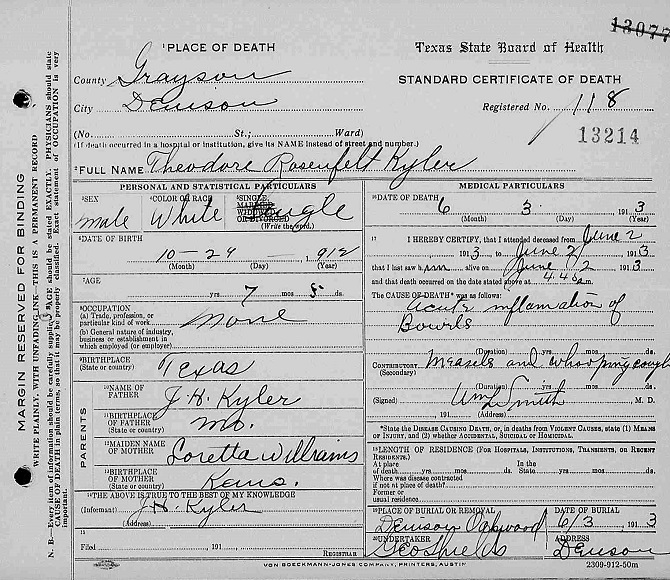 13077
PLACE OF DEATH
Texas State Board of Health
County Grayson
STANDARD CERTIFICATE OF DEATH
City Denison
Registered No. 118
(No. St.; Ward)
13214
(If death occurred in a hospital or institution, give its NAME instead of street and number.)
FULL NAME Theodore Rosenfelt Kyler
PERSONAL AND STATISTICAL PARTICULARS
SEX
Male
COLOR OR RACE
White
SINGLE, MARRIED, WIDOWED, OR DIVORCED
(Write the word.)
Single
DATE OF BIRTH
10-29-, 912
(Month) (Day) (Year)
AGE
yrs 7 mos 5 ds.
OCCUPATION
(a) Trade, profession, or particular kind of work
None
(b) General nature of industry, business or establishment in which employed (or employer)
BIRTHPLACE
(State or country)
Texas
PARENTS
NAME OF FATHER
J. H. Kyler
BIRTHPLACE OF FATHER
(State or country)
Mo.
MAIDEN NAME OF MOTHER
Loretta Williams
BIRTHPLACE OF MOTHER
(State or country)
THE ABOVE IS TRUE TO THE BEST OF MY KNOWLEDGE
(Informant) J. H. Kyler
(Address)
Filed , 191
REGISTRAR
MEDICAL PARTICULARS
DATE OF DEATH
6 3 , 191 3
(Month) (Day) (Year)
I HEREBY CERTIFY, that I attended deceased from June 2
191 3 to June 2 191 3
that I last saw him alive on June 2 191 3
and that death occurred on the date stated above at 4.45 a m.
The CAUSE OF DEATH* was as follows:
Acute inflamation of
Bowels
(Duration) yrs. mos. ds.
CONTRIBUTORY Measels and whooping cough
(Secondary)
(Duration) yrs. mos. ds.
(Signed) Wm Smith, M. D.
, 191 (Address)
*State the DISEASE CAUSING DEATH, or, in deaths from VIOLENT CAUSES, state (1) MEANS OF INJURY, and (2) whether ACCIDENTAL, SUICIDAL OR HOMICIDAL.
LENGTH OF RESIDENCE (FOR HOSPITALS, INSTITUTIONS, TRANSIENTS, OR RECENT RESIDENTS.)
At place of death yrs. mos. ds. In the State yrs. mos. ds.
Where was disease contracted if not at place of death?
Former or usual residence
PLACE OF BURIAL OR REMOVAL
Denison Oakwood
DATE OF BURIAL
6/3, 191 3
UNDERTAKER
Geo Shields
ADDRESS
Denison
VON BOECKMANN-JONES COMPANY, PRINTERS, AUSTIN
2309-912-50m
MARGIN RESERVED FOR BINDING
WRITE PLAINLY, WITH UNFADING INK—THIS IS A PERMANENT RECORD
N. B.—Every item of information should be carefully supplied. AGE should be stated EXACTLY. PHYSICIANS should state CAUSE OF DEATH in plain terms, so that it may be properly classified. Exact statement of OCCUPATION is very important.